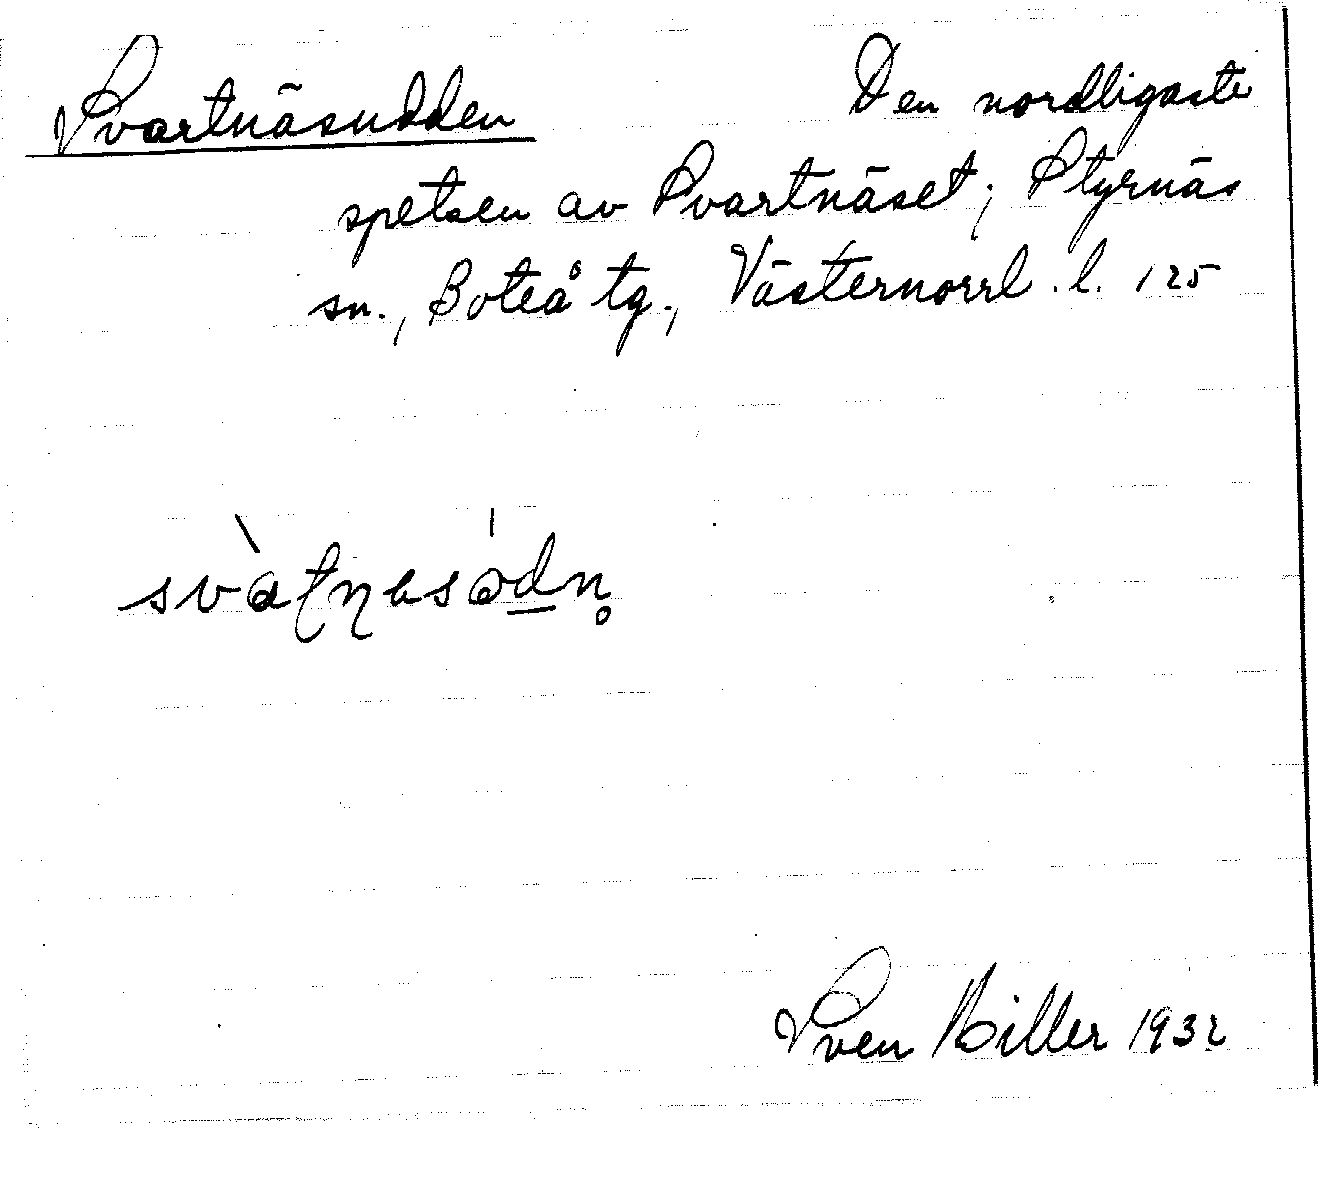 Svartnäsudden Den nordligaste
spetsen av Svartnäset; Styrnäs
sn., Boteå tg., Västernorrl. l. 125
Sven Hiller 1932